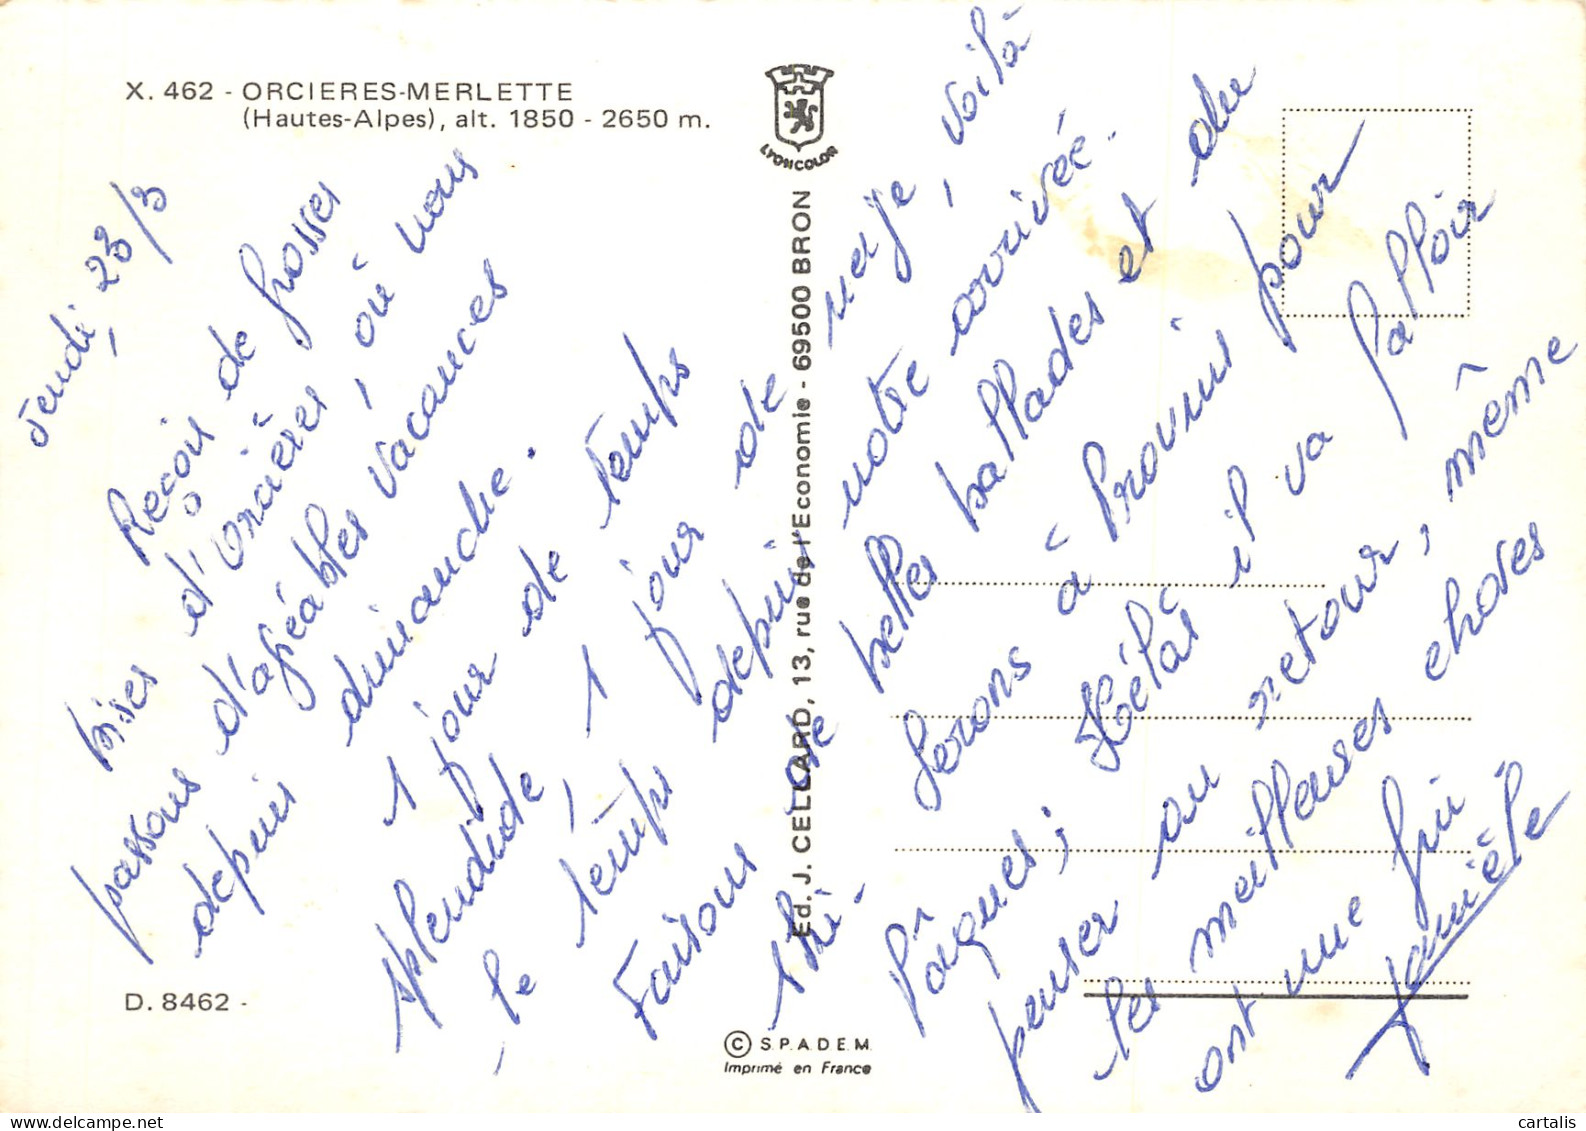 X. 462 - ORCIERES-MERLETTE
(Hautes-Alpes), alt. 1850 - 2650 m.
LYONCOLOR
Jeudi, 23/3
Reçois de grosses
bises d'Orcières, où nous
passons d'agréables vacances
depuis dimanche.
1 jour de temps
splendide, 1 jour de neige, voilà
le temps depuis notre arrivée.
Faisons de belles ballades et du
ski.
Serons à Provins pour
Pâques; Hélas il va falloir
penser au retour, même
les meilleures choses
ont une fin
Danièle
Ed. J. CELLARD, 13, rue de l'Economie - 69500 BRON
D. 8462 -
© S.P.A.D.E.M.
Imprimé en France
cartalis